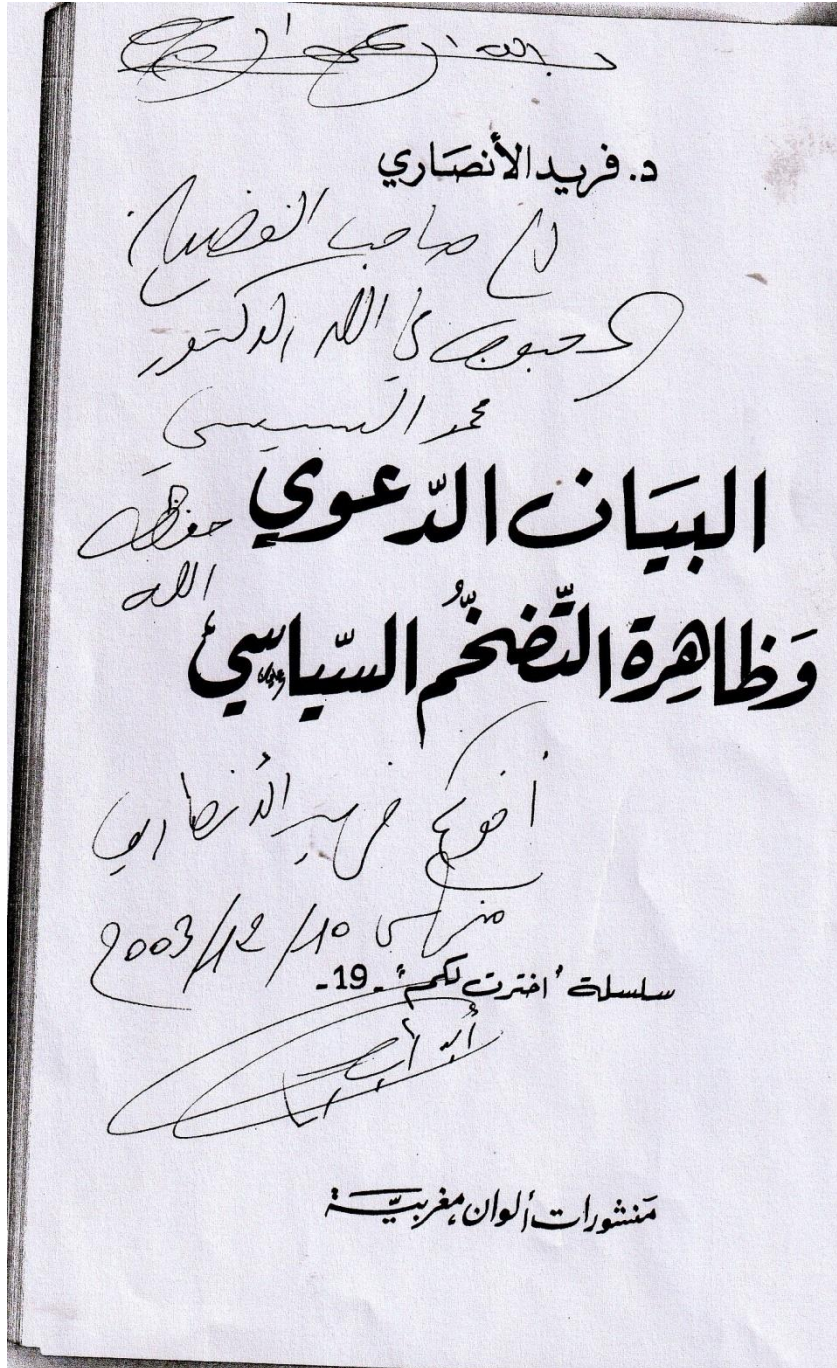 بسم الله الرحمن الرحيم
د. فريد الأنصَاري
إلى صاحب الفضيلة
المحبوب في الله الدكتور
محمد السيسي
حفظه
الله
البيَان الدّعوي
وَظاهِرة التّضخّمُ السّياسِيّ
أخوكم فريد الأنصاري
10/12/2003
سلسلة "اخترت لكم" -19-
مَنشورات ألوان مغربيّة